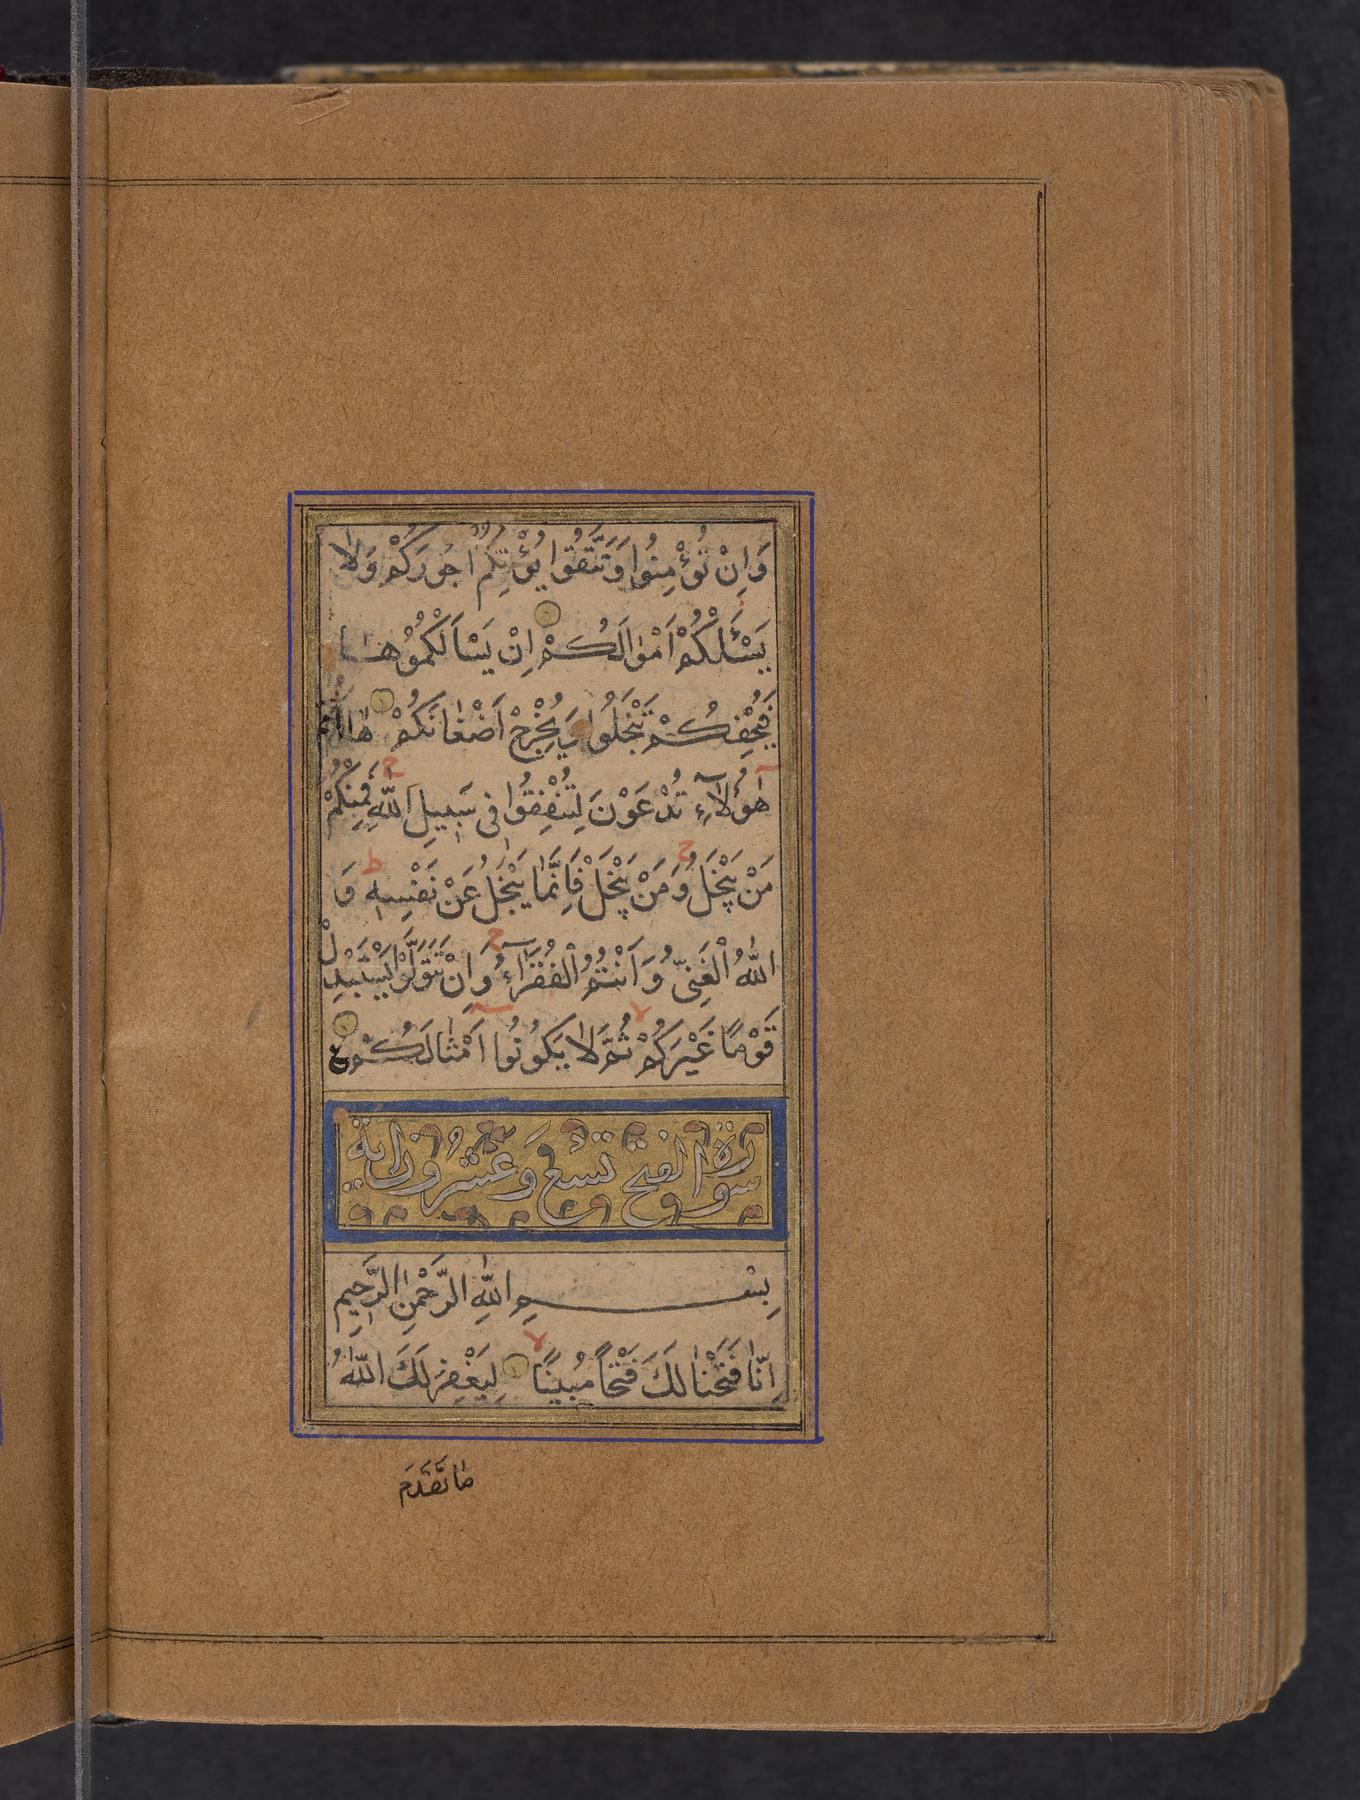 وَاِنْ تُؤْمِنُوا وَتَتَّقُوا يُؤْتِكُمْ اُجُورَكُمْ وَلَا
يَسْـَٔلْكُمْ اَمْوٰالَكُمْ اِنْ يَسْاَلْكُمُوهٰا
فَيُحْفِكُمْ تَبْخَلُوا وَيُخْرِجْ اَضْغٰانَكُمْ هٰااَنْتُمْ
هٰؤُلَآءِ تُدْعَوْنَ لِتُنْفِقُوا فى سَبيلِ اللّٰهِ فَمِنْكُمْ
مَنْ يَبْخَلُ وَمَنْ يَبْخَلْ فَاِنَّمٰا يَبْخَلُ عَنْ نَفْسِهٖ وَ
اللّٰهُ الْغَنِىُّ وَاَنْتُمُ الْفُقَرَآءُ وَاِنْ تَتَوَلَّوْا يَسْتَبْدِلْ
قَوْمًا غَيْرَكُمْ ثُمَّ لٰا يَكُونُوا اَمْثٰالَكُمْ ع
سورة الفتح تسع وَعشرون اية
بِسْمِ اللّٰهِ الرَّحْمٰنِ الرَّحيمِ
اِنّٰا فَتَحْنٰا لَكَ فَتْحًا مُبينًا لِيَغْفِرَ لَكَ اللّٰهُ
مٰا تَقَدَّمَ